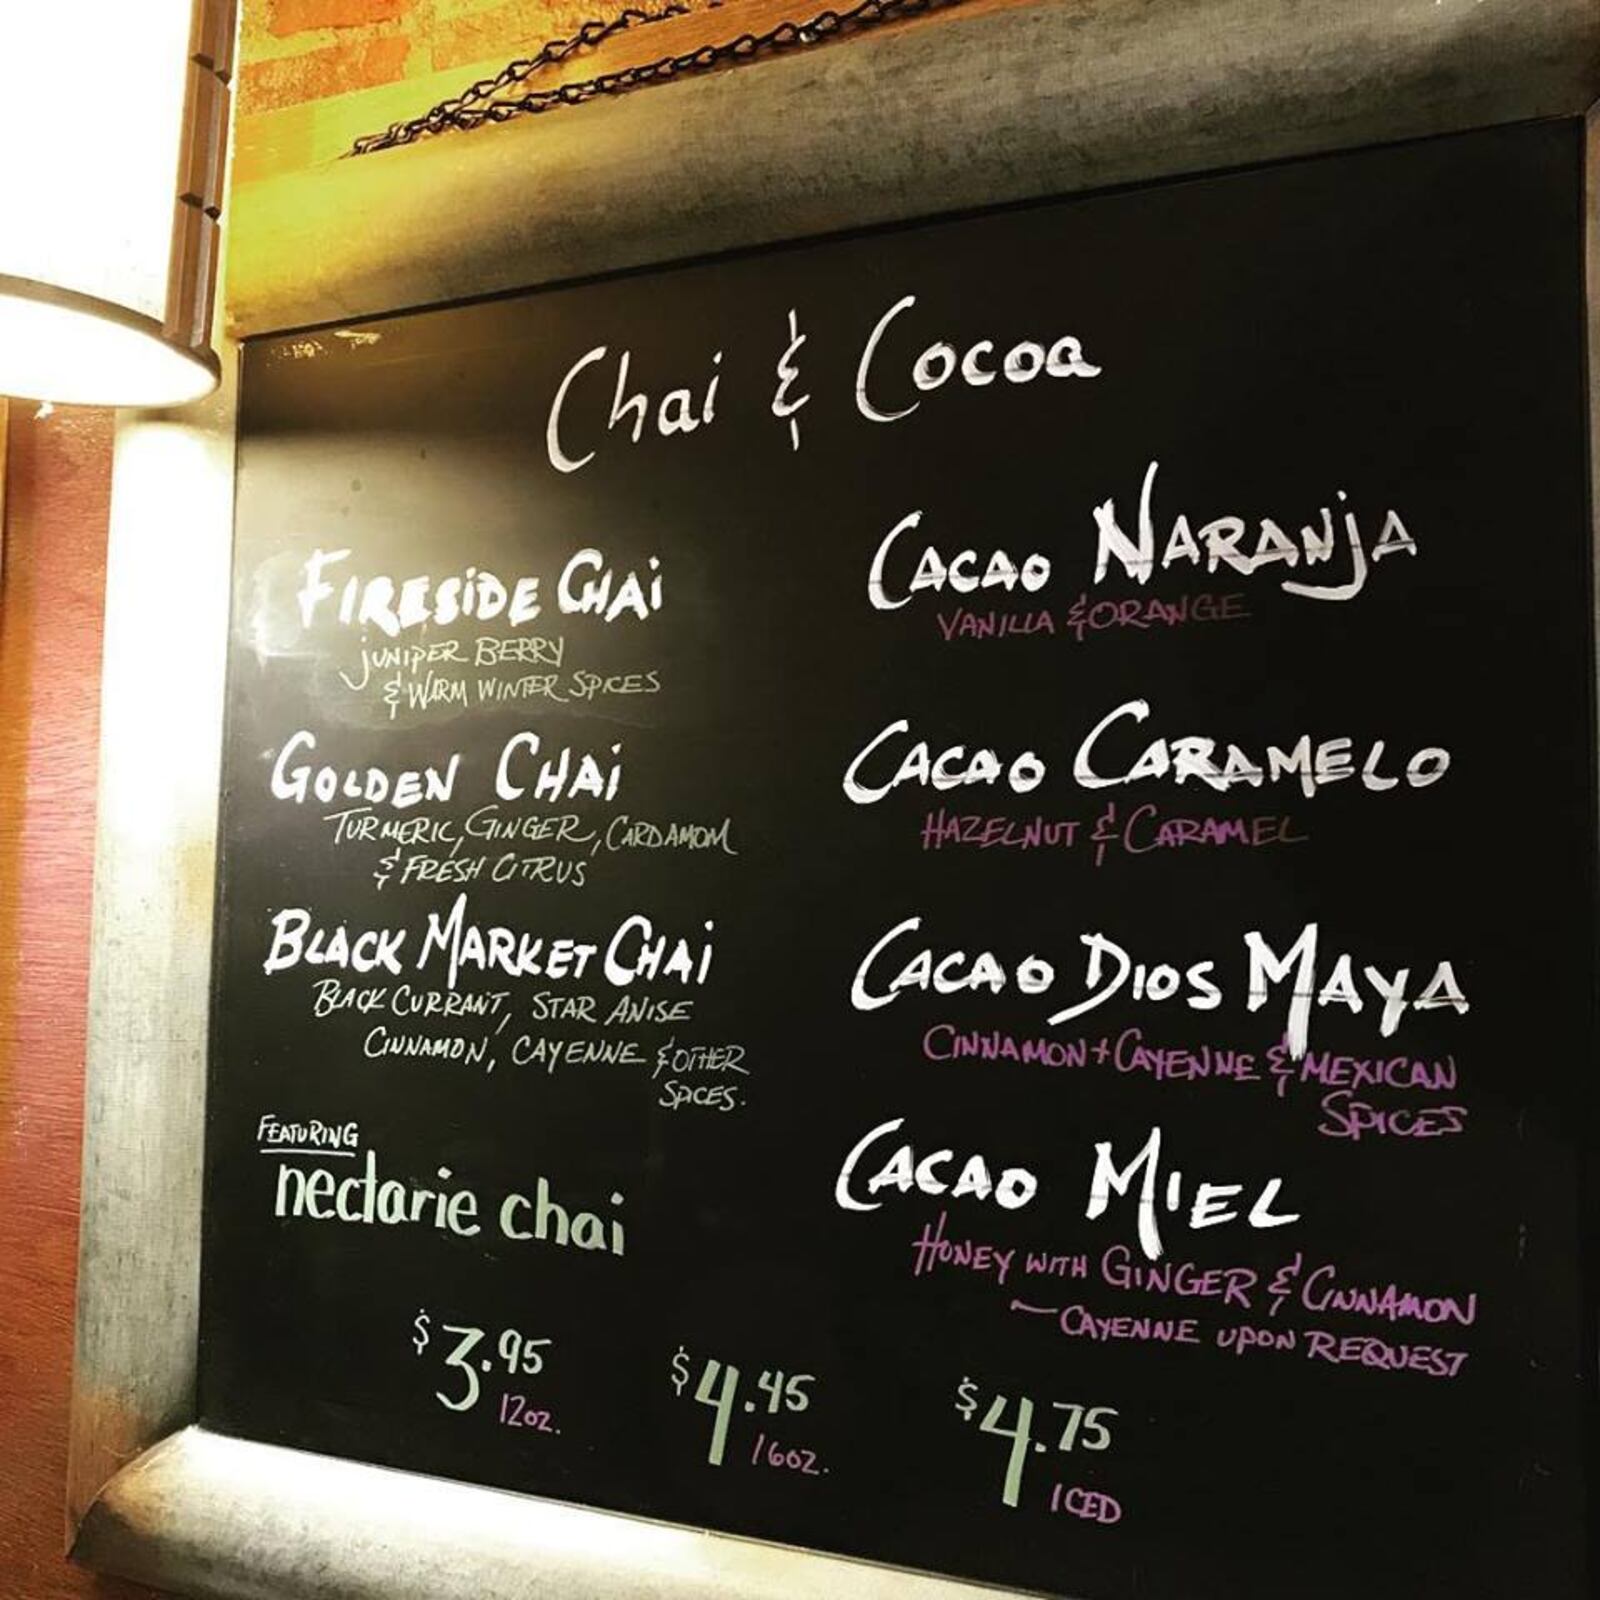 Chai & Cocoa
FIRESIDE CHAI
JUNIPER BERRY
& WARM WINTER SPICES
GOLDEN CHAI
TURMERIC, GINGER, CARDAMOM
& FRESH CITRUS
BLACK MARKET CHAI
BLACK CURRANT, STAR ANISE
CINNAMON, CAYENNE & OTHER
SPICES.
FEATURING
nectarie chai
CACAO NARANJA
VANILLA & ORANGE
CACAO CARAMELO
HAZELNUT & CARAMEL
CACAO DIOS MAYA
CINNAMON + CAYENNE & MEXICAN
SPICES
CACAO MIEL
HONEY WITH GINGER & CINNAMON
— CAYENNE UPON REQUEST
$3.95 $4.45 $4.75
12oz. 16oz. ICED